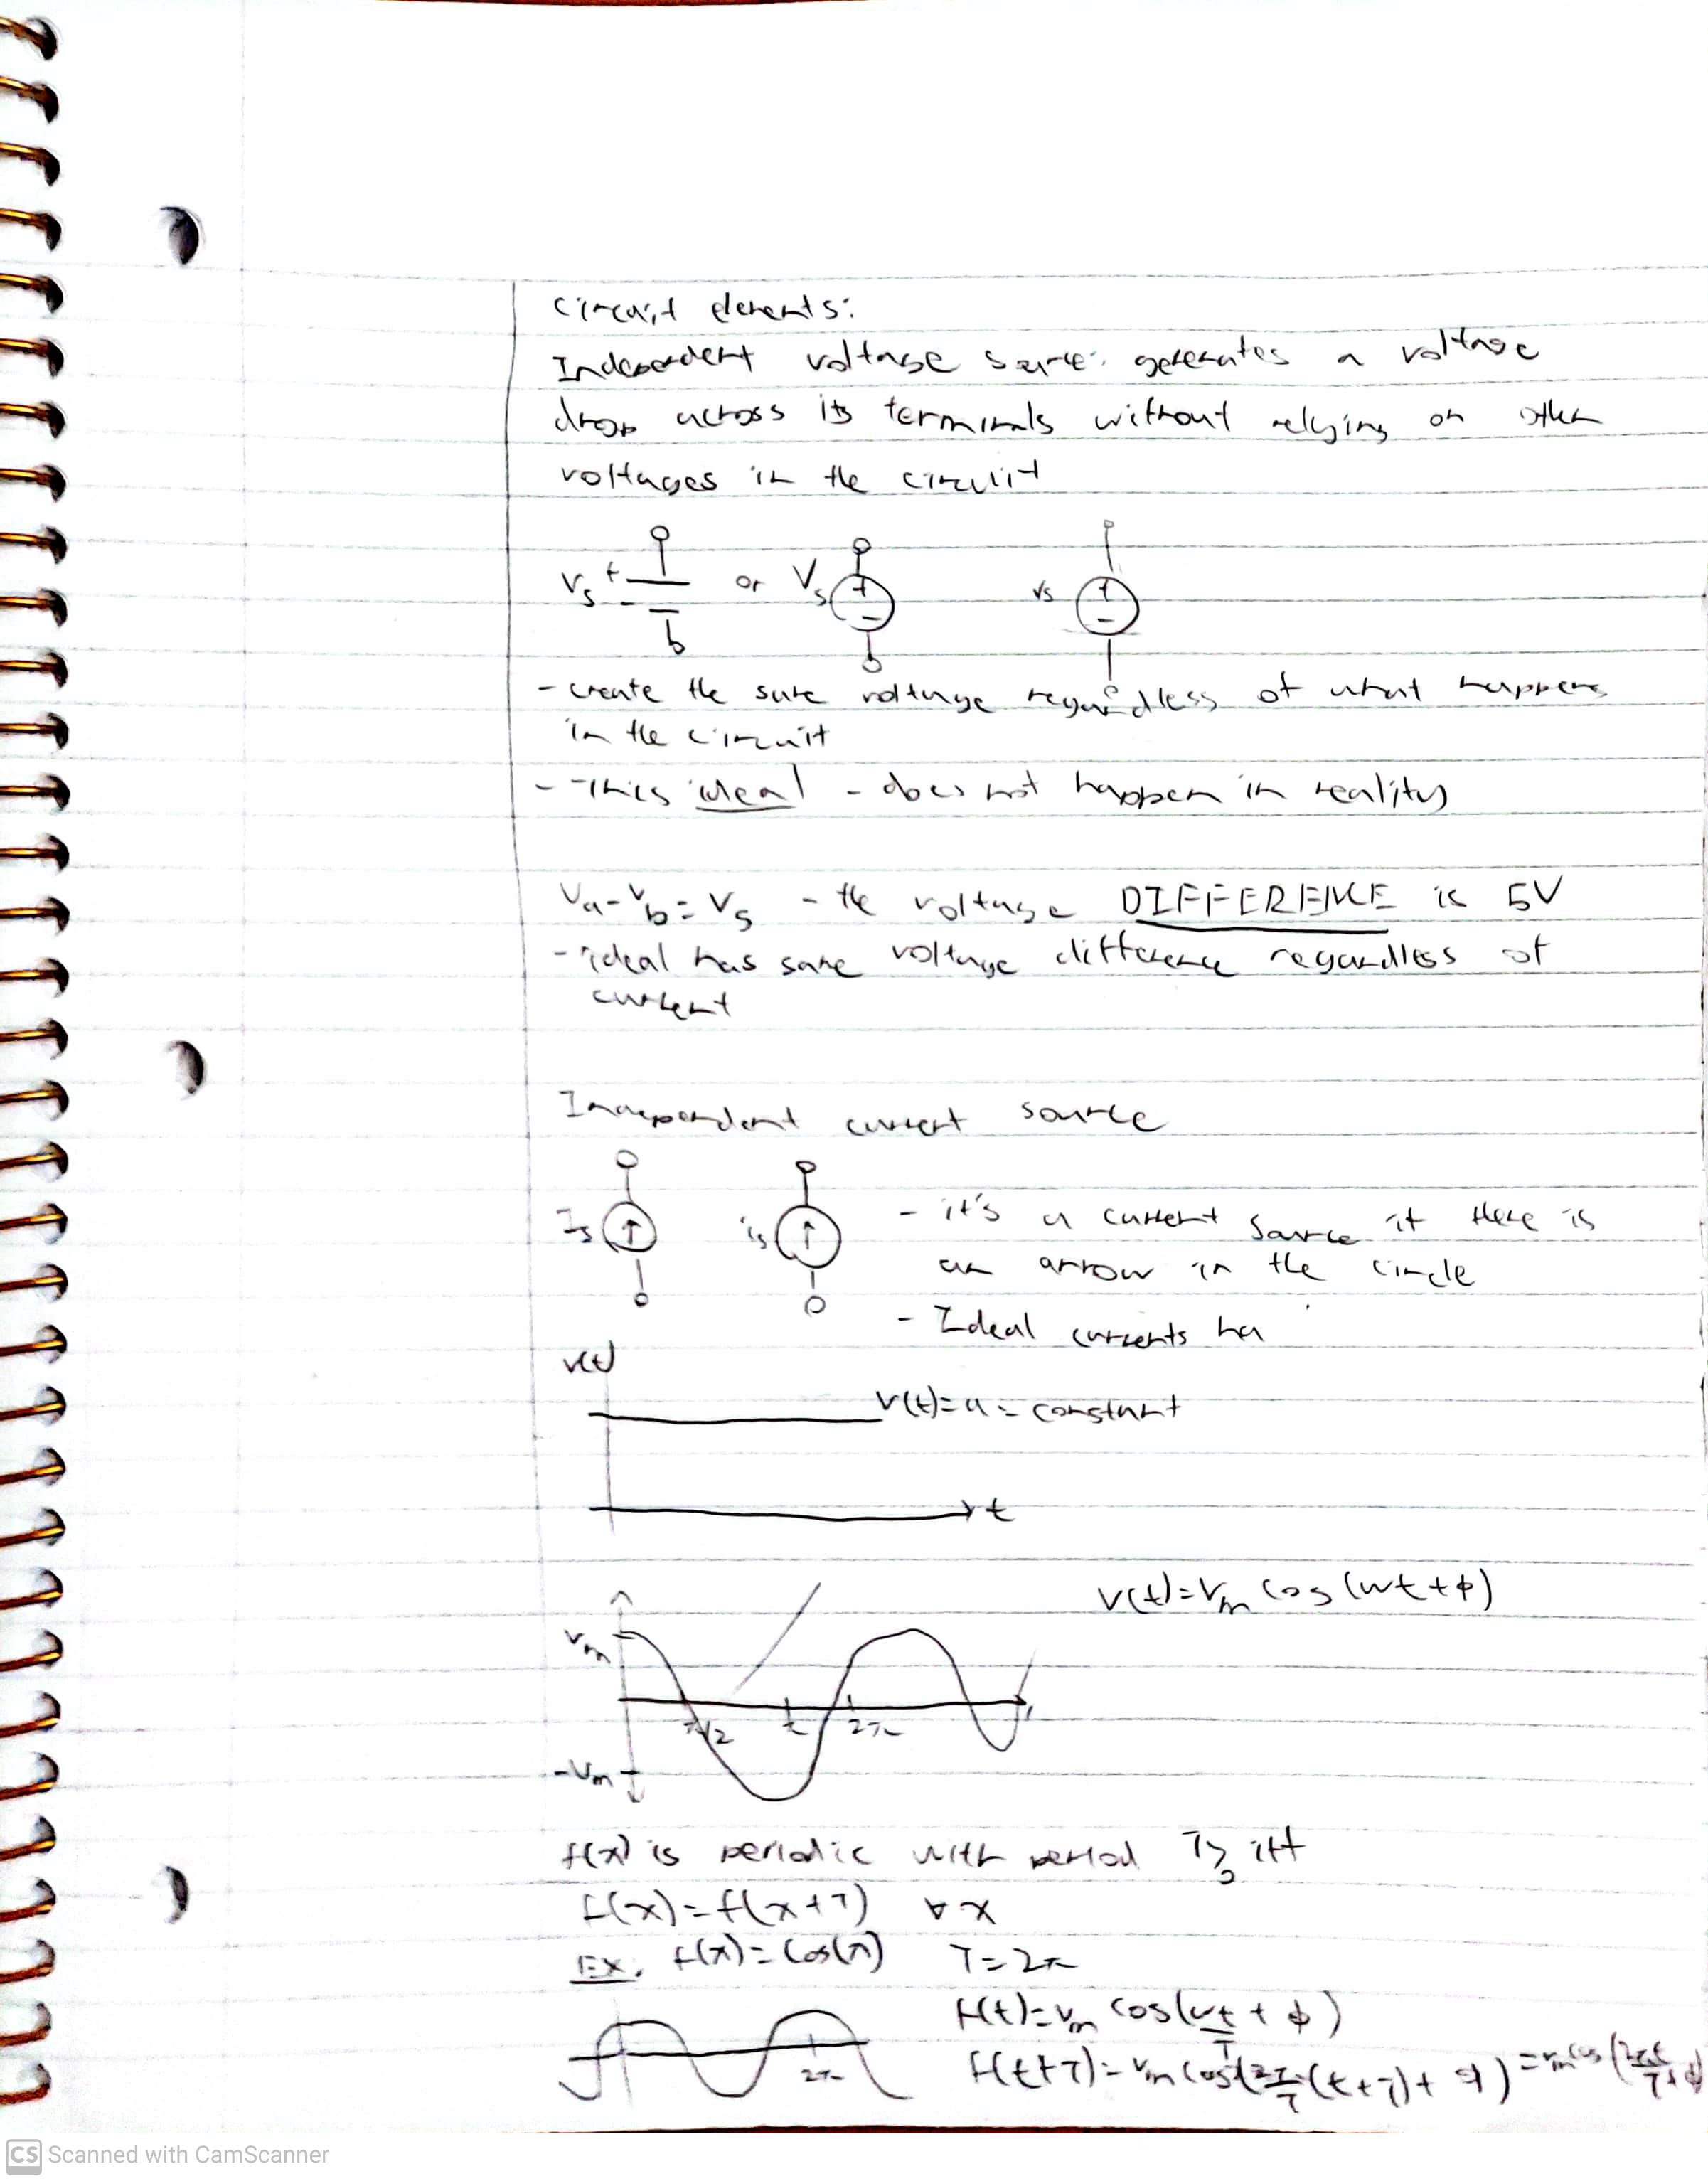 circuit elements:
Independent voltage source: generates a voltage
drop across its terminals without relying on other
voltages in the circuit
Vs + - or Vs + - vs + -
- create the same voltage regardless of what happens
in the circuit
- This ideal - does not happen in reality
Va-Vb=Vs - the voltage DIFFERENCE is 5V
- ideal has same voltage difference regardless of
current
Independent current source
Is ↑ is ↑ - it's a current source if there is
an arrow in the circle
- Ideal currents ha
v(t)
v(t)=a= constant
t
v(t)=Vm cos(wt+φ)
Vm
π/2 2π
-Vm
f(x) is periodic with period T> iff
f(x)=f(x+T) ∀x
Ex. f(x)=cos(x) T=2π
f(t)=Vm cos(wt + φ)
2π
f(t+T)=Vm cos(2π/T(t+T)+φ)=Vm cos(2πt/T+φ)
CS Scanned with CamScanner